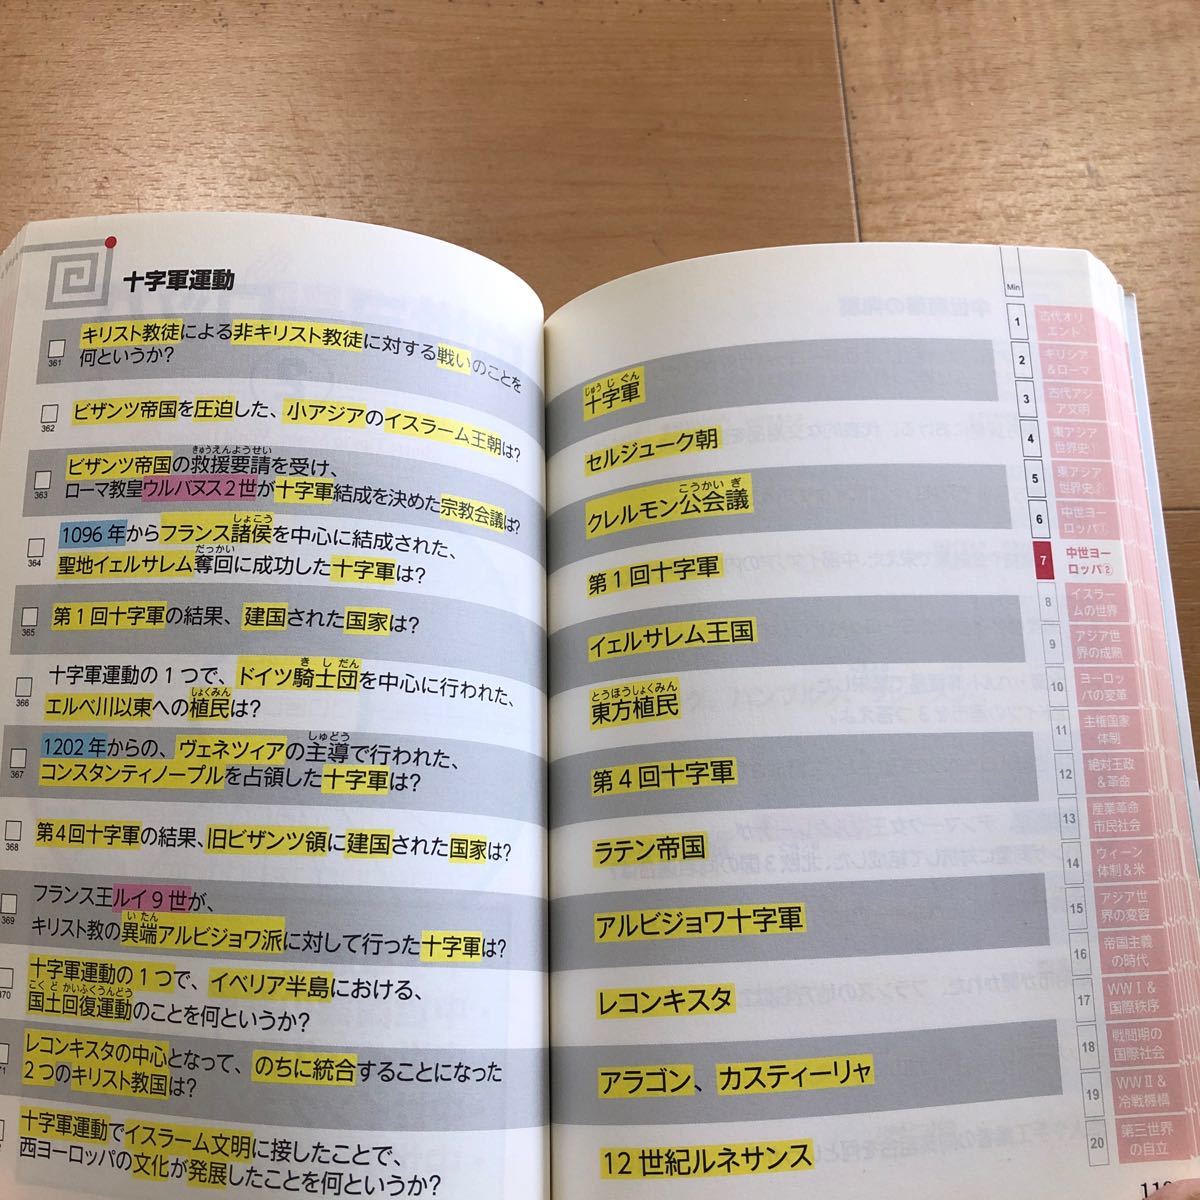 十字軍運動
361
キリスト教徒による非キリスト教徒に対する戦いのことを
何というか?
362
ビザンツ帝国を圧迫した、小アジアのイスラーム王朝は?
363
きゅうえんようせい
ビザンツ帝国の救援要請を受け、
ローマ教皇ウルバヌス2世が十字軍結成を決めた宗教会議は?
364
しょこう
1096年からフランス諸侯を中心に結成された、
だっかい
聖地イェルサレム奪回に成功した十字軍は?
365
第1回十字軍の結果、建国された国家は?
366
きしだん
十字軍運動の1つで、ドイツ騎士団を中心に行われた、
しょくみん
エルベ川以東への植民は?
367
しゅどう
1202年からの、ヴェネツィアの主導で行われた、
コンスタンティノープルを占領した十字軍は?
368
第4回十字軍の結果、旧ビザンツ領に建国された国家は?
369
フランス王ルイ9世が、
いたん
キリスト教の異端アルビジョワ派に対して行った十字軍は?
370
十字軍運動の1つで、イベリア半島における、
こくどかいふくうんどう
国土回復運動のことを何というか?
レコンキスタの中心となって、のちに統合することになった
2つのキリスト教国は?
十字軍運動でイスラーム文明に接したことで、
西ヨーロッパの文化が発展したことを何というか?
じゅうじぐん
十字軍
セルジューク朝
こうかいぎ
クレルモン公会議
第1回十字軍
イェルサレム王国
とうほうしょくみん
東方植民
第4回十字軍
ラテン帝国
アルビジョワ十字軍
レコンキスタ
アラゴン、カスティーリャ
12世紀ルネサンス
Min
1 古代オリ
エント
2 ギリシア
&ローマ
3 古代アジ
ア文明
4 東アジア
世界史①
5 東アジア
世界史②
6 中世ヨー
ロッパ①
7 中世ヨー
ロッパ②
8 イスラー
ムの世界
9 アジア世
界の成熟
10 ヨーロッ
パの変革
11 主権国家
体制
12 絶対王政
&革命
13 産業革命
市民社会
14 ウィーン
体制&米
15 アジア世
界の変容
16 帝国主義
の時代
17 WWⅠ&
国際秩序
18 戦間期の
国際社会
19 WWⅡ&
冷戦機構
20 第三世界
の自立